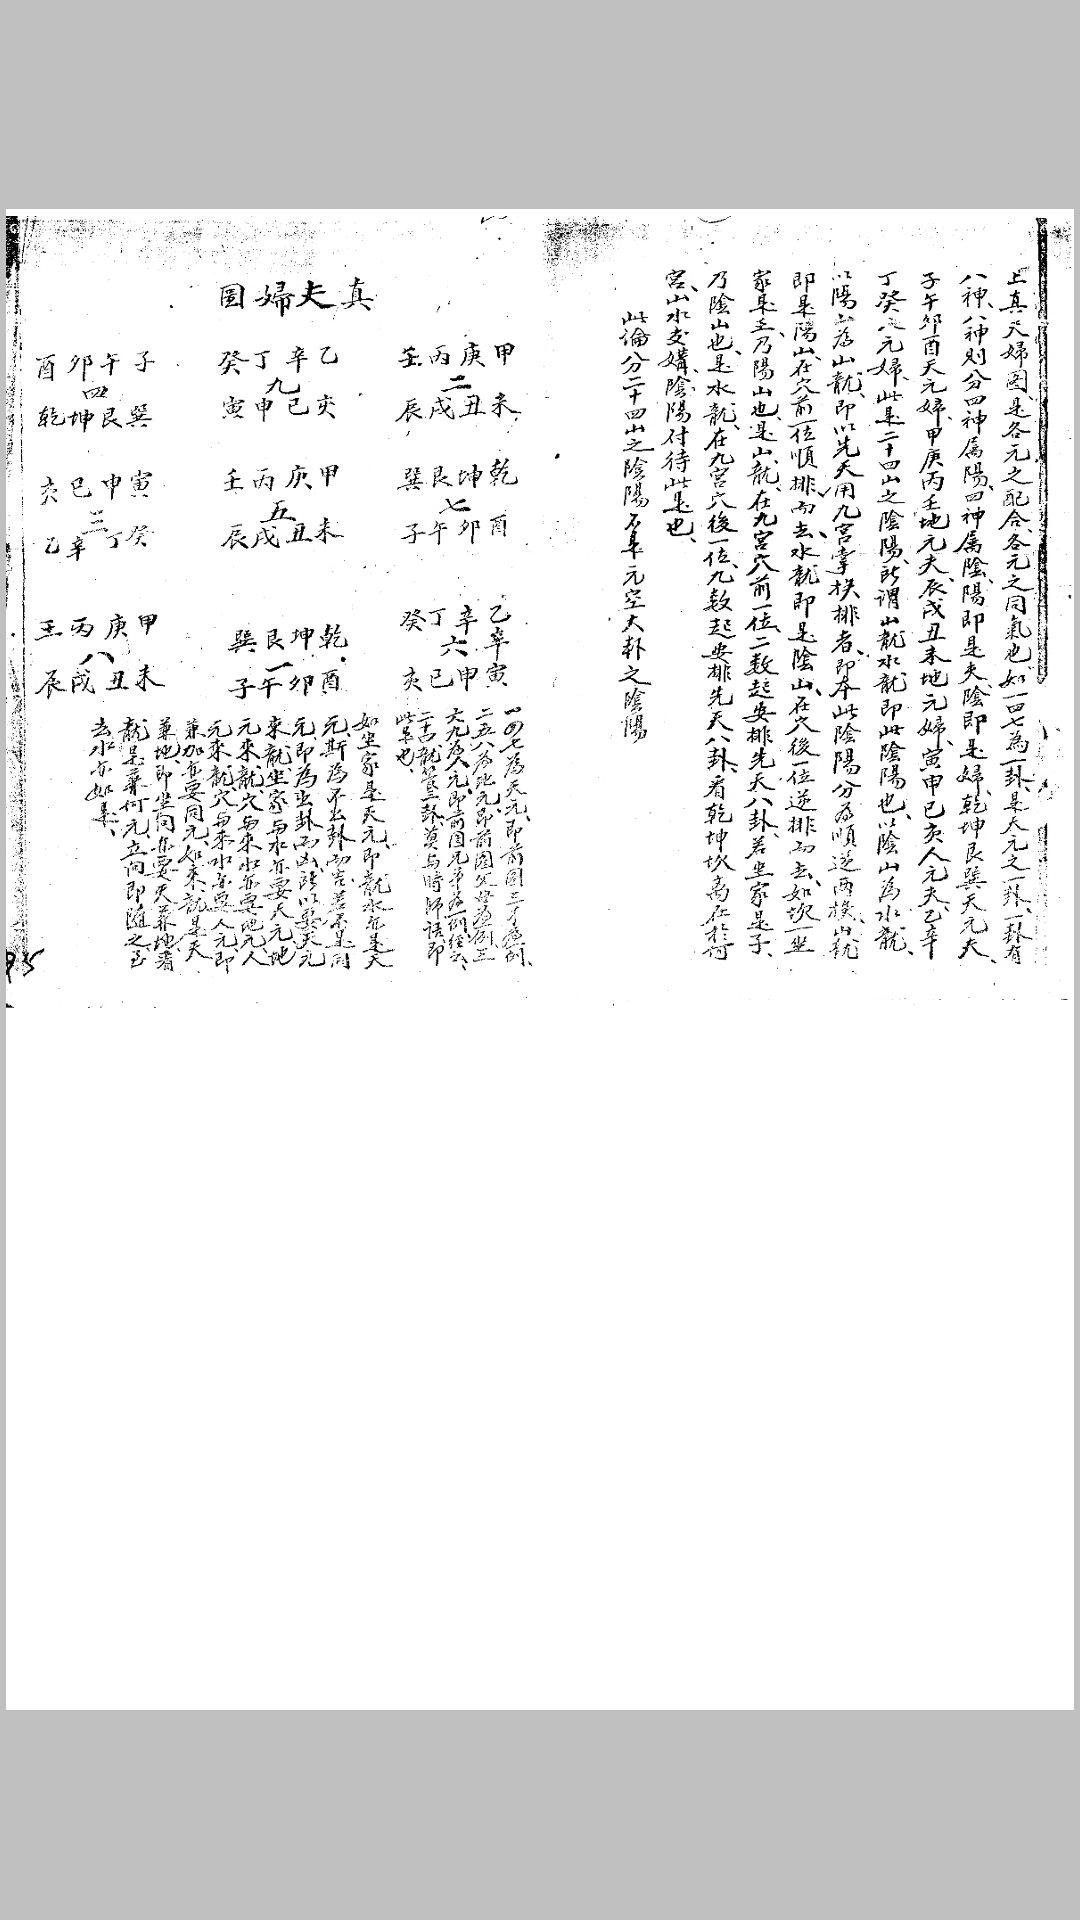 上真夫婦图、是各元之配合、各元之同氣也、如一四七為一卦、是天元之一卦、一卦有
八神、八神則分四神属陽、四神属陰、陽即是夫、陰即是婦、乾坤艮巽天元夫、
子午卯酉天元婦、甲庚丙壬地元夫、辰戌丑未地元婦、寅申巳亥人元夫、乙辛
丁癸人元婦、此是二十四山之陰陽、所謂山龍水龍即此陰陽也、以陰山為水龍、
以陽山為山龍、即以先天用九宮掌挨排者、即本此陰陽分為順逆兩挨、山龍
即是陽山、在穴前一位順排而去、水龍即是陰山、在穴後一位逆排而去、如坎一坐
家是壬、乃陽山也、是山龍、在九宮穴前一位、二数起安排先天八卦、若坐家是子、
乃陰山也、是水龍、在九宮穴後一位、九数起安排先天八卦、看乾坤坎离在於何
宮、山水交媾、陰陽付待此是也、
此論分二十四山之陰陽不是元空大卦之陰陽
真夫婦图
甲庚丙壬
二
未丑戌辰
乙辛丁癸
九
亥巳申寅
子午卯酉
四
巽艮坤乾
乾坤艮巽
七
酉卯午子
甲庚丙壬
五
未丑戌辰
寅申巳亥
三
癸丁辛乙
乙辛丁癸
六
辛
寅申巳亥
乾坤艮巽
一
酉卯午子
甲庚丙壬
八
未丑戌辰
一四七為天元、即前图三才為例、
二五八為地元、即前图父母為例、三
六九為人元、即前图兄弟為例、經云、
二十四龍管三卦、莫与時師話、即
此是也、
如坐家是天元、即龍水亦是天
元、斯為不出卦而吉、若不是同
元、即為出卦而凶、所以要天元
來龍、坐家与水亦要天元、地
元來龍、穴与來水亦要地元、人
元來龍、穴与來水亦要人元、即
兼加亦要同元、如來龍是天
兼地、即坐向亦要天兼地、看
龍是兼何元、立向即隨之、至
去水亦如是、